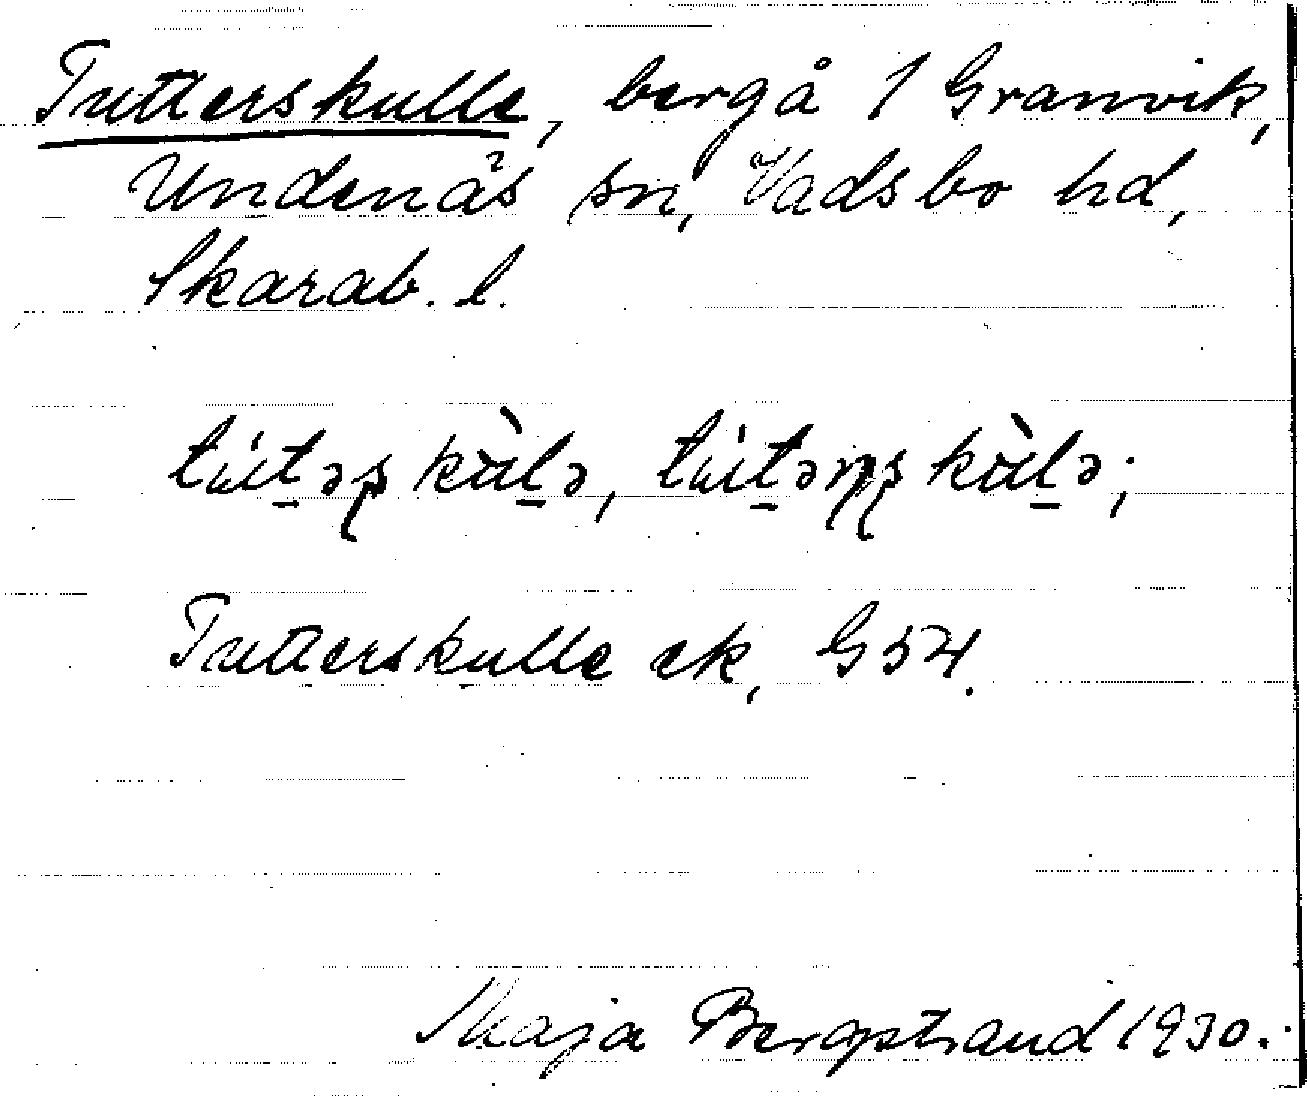 Tutterskulle, bergå / Granvik,
Undenäs sn, Vadsbo hd,
Skarab. l.
tu̍t̠əʂkùl̠ə, tu̍t̠əɳʂkùl̠ə;
Tutterskulle ek, G54.
Maja Bergstrand 1930.